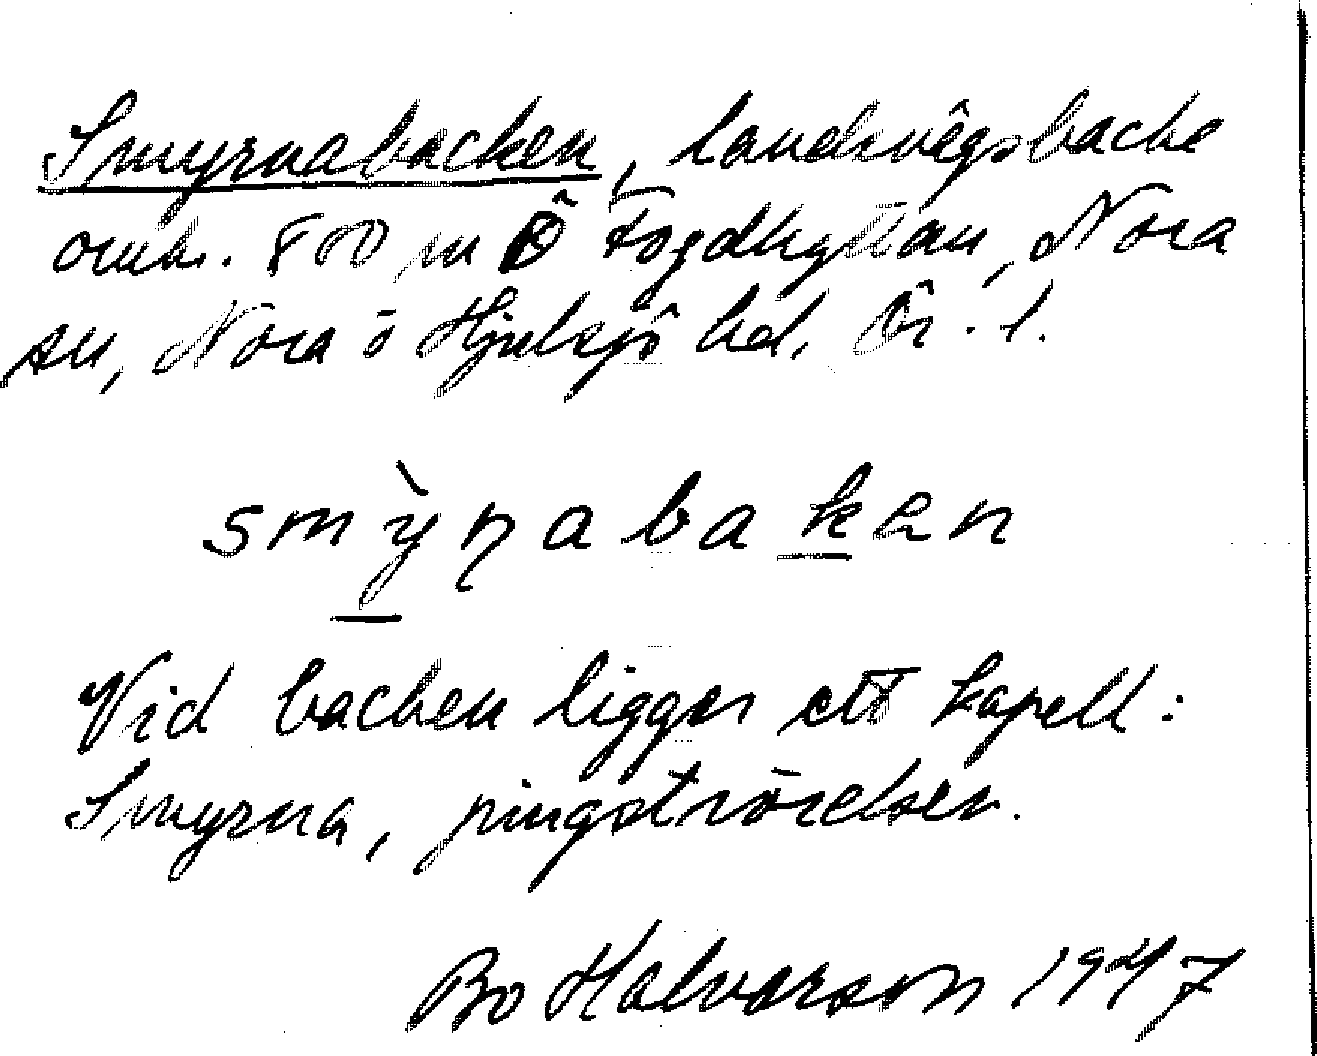 Smyrnabacken, landsvägsbacke
omkr. 800 m Ö Fogdhyttan, Nora
sn, Nora o Hjulsjö hd. Ör. l.
smỳṇabaken
Vid backen ligger ett kapell:
Smyrna, pingströrelsen.
Bo Halvarson 1947